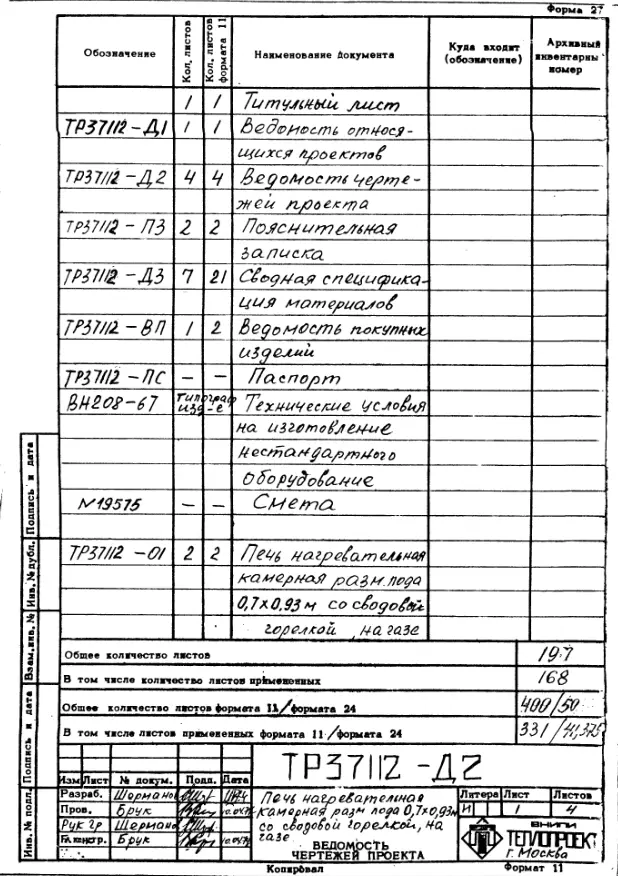 Форма 27
Обозначение Кол. листов Кол. листов формата 11 Наименование Документа Куда входит (обозначение) Архивный инвентарны номер
1 1 Титульный лист
ТР37112-Д1 1 1 Ведомость относя-
щихся проектов
ТР37112-Д2 4 4 Ведомость черте-
жей проекта
ТР37112-ПЗ 2 2 Пояснительная
записка
ТР37112-ДЗ 7 21 Сводная специфика-
ция материалов
ТР37112-ВП 1 2 Ведомость покупных
изделий
ТР37112-ПС — — Паспорт
ВН208-67 типограф изд-е Технические условия
на изготовление
нестандартного
оборудование
N19575 — — Смета
ТР37112-01 2 2 Печь нагревательная
камерная разм.пода
0,7х0,93м со сводовой
горелкой на газе
Общее количество листов 197
В том числе количество листов применных 168
Общее количество листов формата 11/формата 24 400/50
В том числе листов примененных формата 11/формата 24 331/41,375
Подпись и дата
Инв. № дубл.
Взам.инв. №
Подпись и дата
Инв. № подл.
ТР37112-Д2
Изм Лист № докум. Подп. Дата
Разраб. Шермано
Пров. Брук
Рук гр Шермано
Гл.констр. Брук
Печь нагревательная
камерная разм пода 0,7х0,93м
со сводовой горелкой, на
газе
ВЕДОМОСТЬ
ЧЕРТЕЖЕЙ ПРОЕКТА
Литера Лист Листов
И 1 4
ВНИПИ
ТЕПЛОПРОЕКТ
г. Москва
Копировал Формат 11